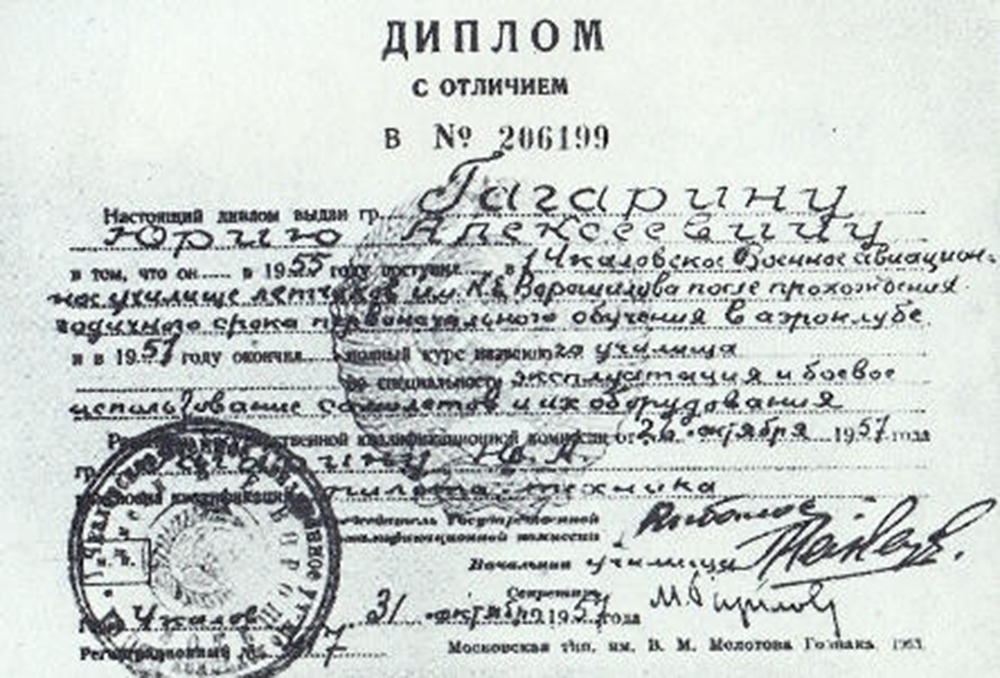 ДИПЛОМ
С ОТЛИЧИЕМ
В № 206199
Настоящий диплом выдан гр. Гагарину
Юрию Алексеевичу
в том, что он в 1955 году поступил в 1 Чкаловское Военное авиацион-
ное училище летчиков им. К.Е. Ворошилова после прохождения
годичного срока первоначального обучения в аэроклубе
и в 1957 году окончил полный курс названного училища
по специальности эксплуатация и боевое
использование самолетов и их оборудования
Государственной квалификационной комиссии от октября 1957 года
гр. Гагарину Ю.А.
квалификация пилота-техника
Председатель Государственной
квалификационной комиссии
Начальник училища
Секретарь
Чкалов 31 октября 1957 года
Регистрационный № 7
Московская тип. им. В. М. Молотова Гознака